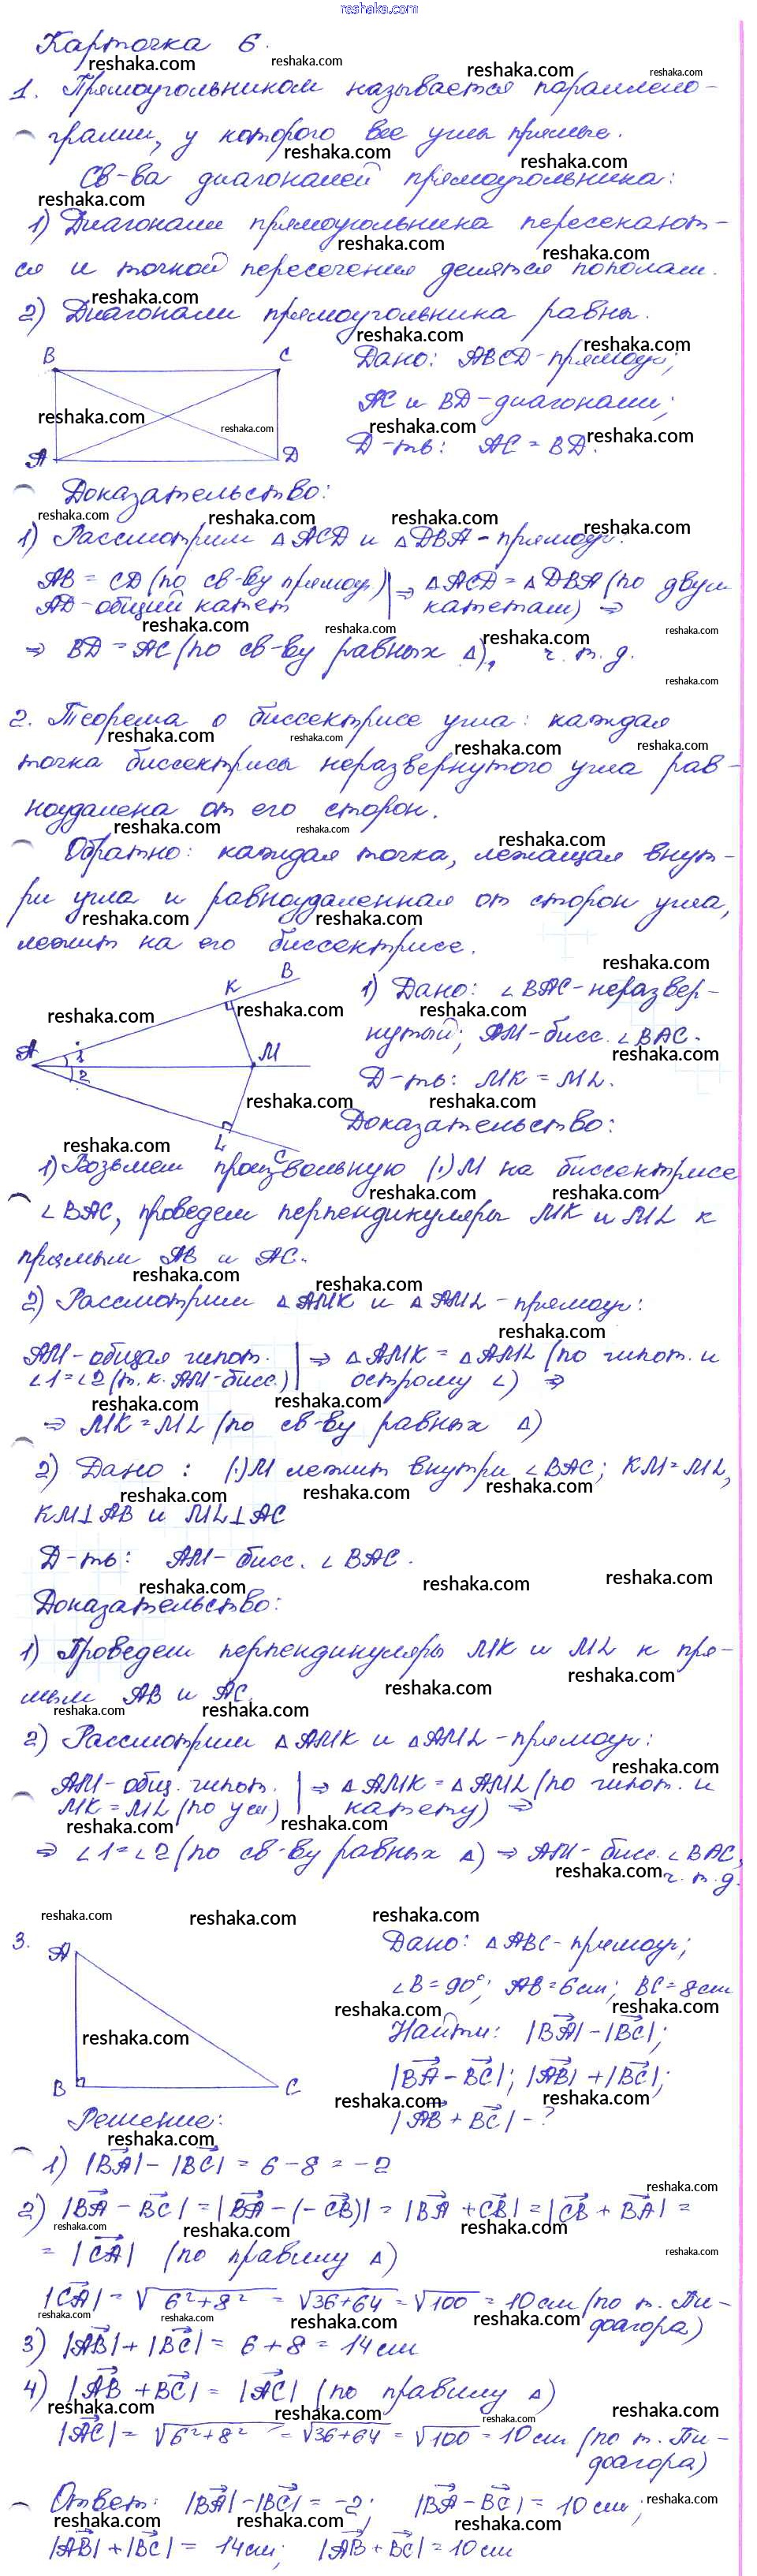 reshaka.com
Карточка 6.
1. Прямоугольником называется параллело-
грамм, у которого все углы прямые.
Св-ва диагоналей прямоугольника:
1) Диагонали прямоугольника пересекают-
ся и точкой пересечения делятся пополам.
2) Диагонали прямоугольника равны.
B C
A D
Дано: ABCD-прямоуг;
AC и BD-диагонали;
Д-ть: AC = BD.
Доказательство:
1) Рассмотрим △ACD и △DBA - прямоуг.
AB = CD (по св-ву прямоуг) | ⇒ △ACD = △DBA (по двум
AD-общий катет | катетам) ⇒
⇒ BD = AC (по св-ву равных △), ч.т.д.
2. Теорема о биссектрисе угла: каждая
точка биссектрисы неразвернутого угла рав-
ноудалена от его сторон.
Обратно: каждая точка, лежащая внут-
ри угла и равноудаленная от сторон угла,
лежит на его биссектрисе.
A 1 2 K B M L C
1) Дано: ∠BAC-неразвер-
нутый; AM-бисс. ∠BAC.
Д-ть: MK = ML.
Доказательство:
1) Возьмем произвольную (·)M на биссектрисе
∠BAC, проведем перпендикуляры MK и ML к
прямым AB и AC.
2) Рассмотрим △AMK и △AML - прямоуг:
AM-общая гипот. | ⇒ △AMK = △AML (по гипот. и
∠1=∠2 (т.к. AM-бисс.) | острому ∠) ⇒
⇒ MK = ML (по св-ву равных △)
2) Дано: (·)M лежит внутри ∠BAC; KM=ML,
KM⊥AB и ML⊥AC
Д-ть: AM-бисс. ∠BAC.
Доказательство:
1) Проведем перпендикуляры MK и ML к пря-
мым AB и AC.
2) Рассмотрим △AMK и △AML - прямоуг:
AM-общ. гипот. | ⇒ △AMK = △AML (по гипот. и
MK = ML (по усл) | катету) ⇒
⇒ ∠1=∠2 (по св-ву равных △) ⇒ AM-бисс. ∠BAC,
ч.т.д.
3.
A
B C
Дано: △ABC-прямоуг;
∠B=90°; AB=6см; BC=8см
Найти: |BA| - |BC|;
|BA - BC|; |AB| + |BC|;
|AB + BC| - ?
Решение:
1) |BA| - |BC| = 6 - 8 = -2
2) |BA - BC| = |BA - (-CB)| = |BA + CB| = |CB + BA| =
= |CA| (по правилу △)
|CA| = √6²+8² = √36+64 = √100 = 10см (по т. Пи-
фагора)
3) |AB| + |BC| = 6 + 8 = 14см
4) |AB + BC| = |AC| (по правилу △)
|AC| = √6²+8² = √36+64 = √100 = 10см (по т. Пи-
фагора)
Ответ: |BA| - |BC| = -2; |BA - BC| = 10см;
|AB| + |BC| = 14см; |AB + BC| = 10см